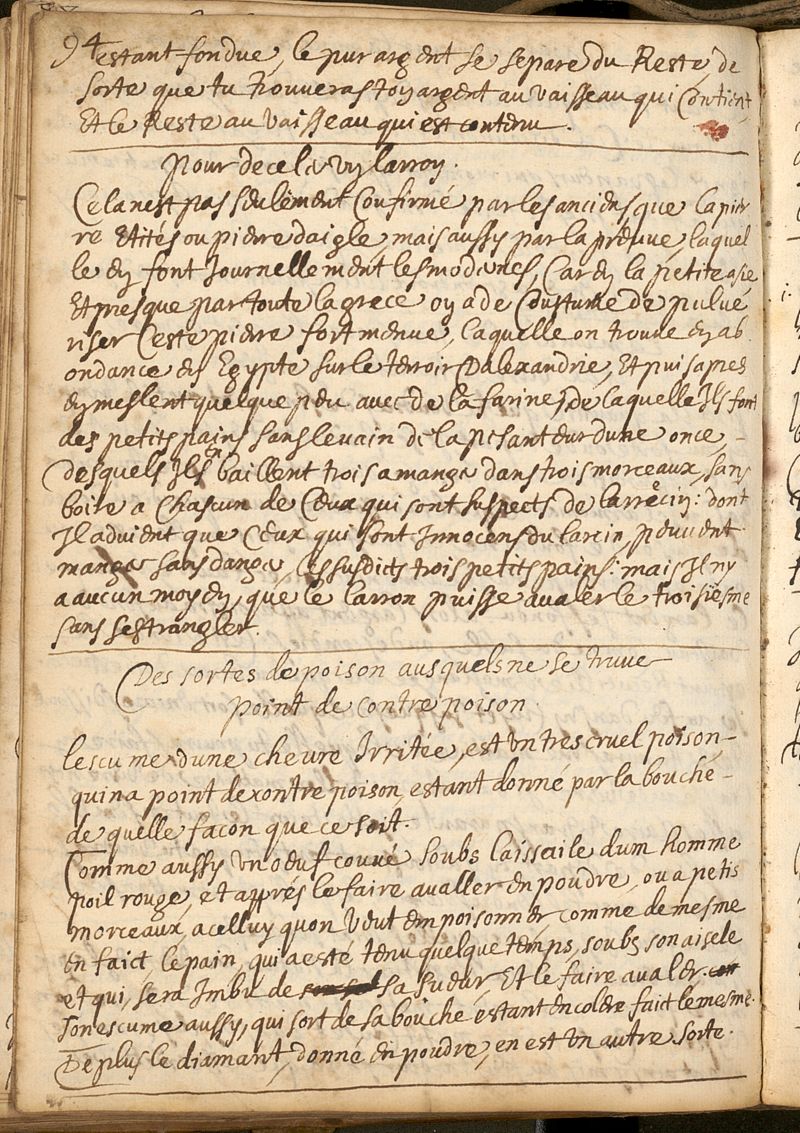 94
estant fondue, le pur argent se separe du Reste, de
sorte que tu trouveras ton argent au vaisseau qui Contient
Et le Reste au Vaisseau qui est contenu.
pour deceler un larron.
Cela nest pas seulement Confirmé par les anciens que la pier
re Etités ou pierre daigle, mais aussy par la preuve, laquel
le en font Journellement les modernes, Car en la petite asie
Et presque par toute la grece on a de Coustume de pulvé
riser Ceste pierre fort menue, laquelle on trouve en ab
ondance en Egypte sur le terroir Dalexandrie, Et puis apres
en meslent quelque peu avec de la farine, de laquelle Ils font
des petits pains sans levain de la pesanteur dune once,
desquels Ils baillent trois a manger dans trois morceaux, sans
boire a Chascun de Ceux qui sont suspects de larrecin: dont
Il advient que Ceux qui sont Innocens du larcin, peuvent
manger sans danger, les susdicts trois petits pains: mais Il ny
a aucun moyen, que le larron puisse avaler le troisiesme
sans sestrangler.
Des sortes de poison ausquels ne se truve
point de contre poison.
lescume dune chevre Irritée, est un tres cruel poison
qui na point de contre poison, estant donné par la bouche
de quelle facon que ce soit.
Comme aussy un oeuf couvé soubs laissaile dum homme
poil rouge, et apprés le faire avaller en poudre, ou a petis
morceaux, a celluy quon veut empoisonner, comme de mesme
en faict, le pain, qui a esté tenu quelque temps, soubs son aisele
et qui, sera Imbu de sa sueur, Et le faire avaler.
son escume aussy, qui sort de sa bouche estant en colere faict le mesme.
De plus le diamant, donné en poudre, en est un autre sorte.